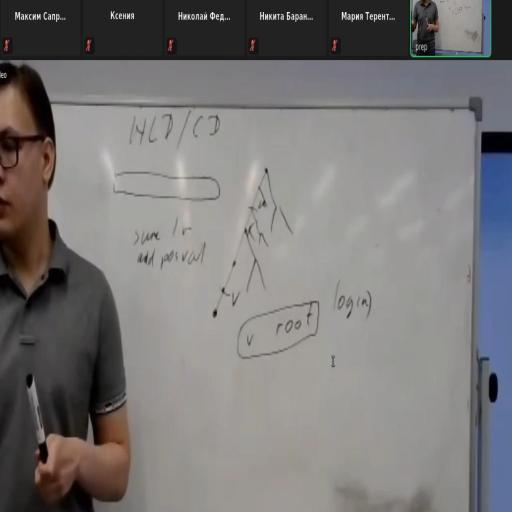 Максим Сапр...
Ксения
Николай Фед...
Никита Баран...
Мария Терент...
prep
HLD/CD
sum l r
add pos val
v
v root
log(n)